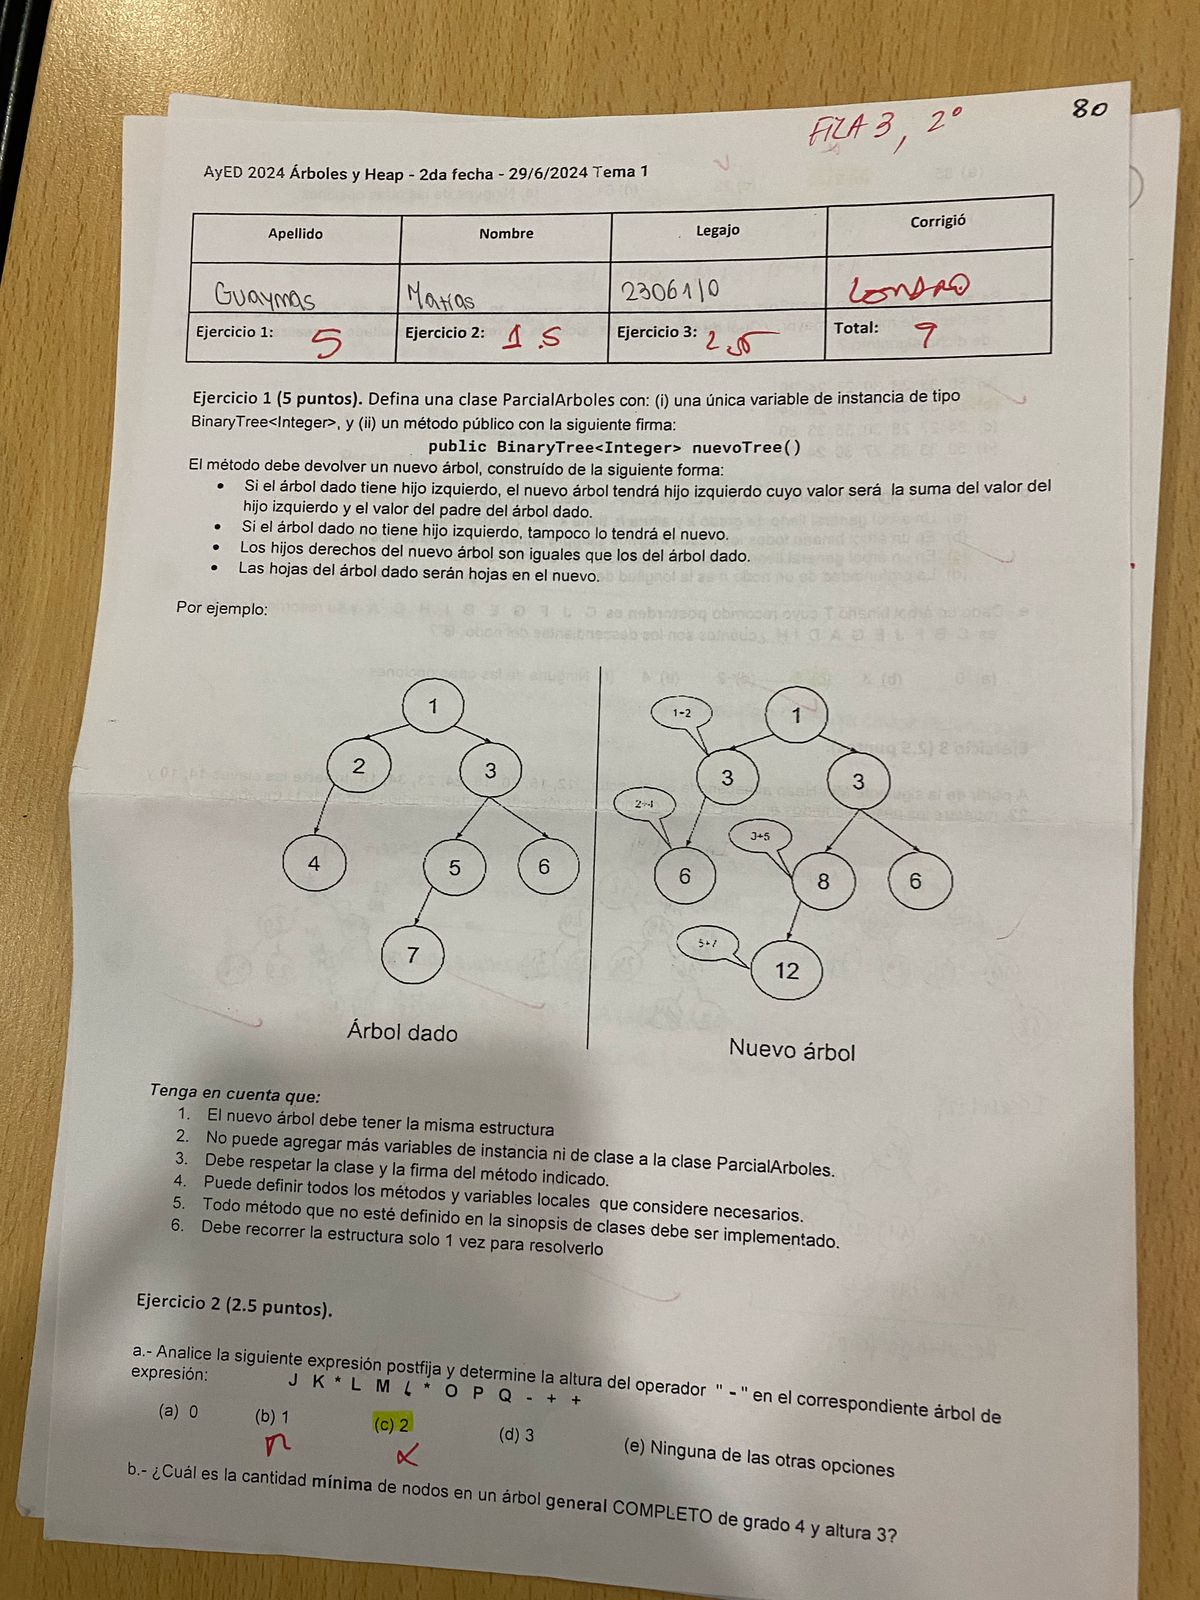 FILA 3, 2°
80
AyED 2024 Árboles y Heap - 2da fecha - 29/6/2024 Tema 1
Apellido Nombre Legajo Corrigió
Guaymas Matias 23061/0
Ejercicio 1: 5 Ejercicio 2: 1.5 Ejercicio 3: 2.5 Total: 9
Ejercicio 1 (5 puntos). Defina una clase ParcialArboles con: (i) una única variable de instancia de tipo
BinaryTree<Integer>, y (ii) un método público con la siguiente firma:
public BinaryTree<Integer> nuevoTree()
El método debe devolver un nuevo árbol, construído de la siguiente forma:
• Si el árbol dado tiene hijo izquierdo, el nuevo árbol tendrá hijo izquierdo cuyo valor será la suma del valor del
hijo izquierdo y el valor del padre del árbol dado.
• Si el árbol dado no tiene hijo izquierdo, tampoco lo tendrá el nuevo.
• Los hijos derechos del nuevo árbol son iguales que los del árbol dado.
• Las hojas del árbol dado serán hojas en el nuevo.
Por ejemplo:
1
2 3
4 5 6
7
Árbol dado
1+2 1
3 3
2+4 3+5
6 8 6
5+7 12
Nuevo árbol
Tenga en cuenta que:
1. El nuevo árbol debe tener la misma estructura
2. No puede agregar más variables de instancia ni de clase a la clase ParcialArboles.
3. Debe respetar la clase y la firma del método indicado.
4. Puede definir todos los métodos y variables locales que considere necesarios.
5. Todo método que no esté definido en la sinopsis de clases debe ser implementado.
6. Debe recorrer la estructura solo 1 vez para resolverlo
Ejercicio 2 (2.5 puntos).
a.- Analice la siguiente expresión postfija y determine la altura del operador " - " en el correspondiente árbol de
expresión:
J K * L M * O P Q - + +
(a) 0 (b) 1 (c) 2 (d) 3 (e) Ninguna de las otras opciones
b.- ¿Cuál es la cantidad mínima de nodos en un árbol general COMPLETO de grado 4 y altura 3?